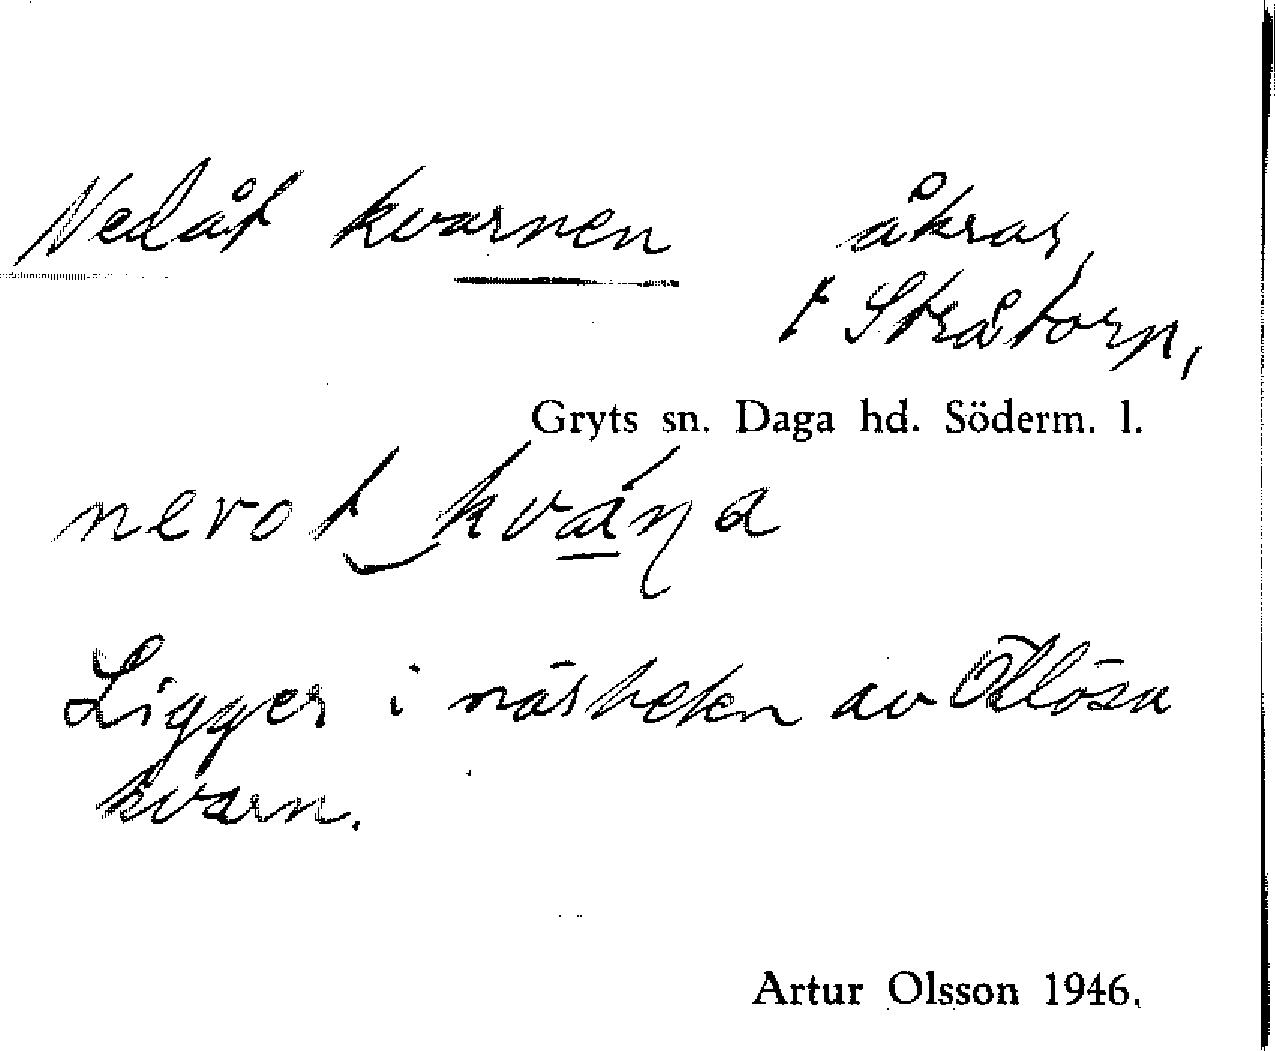 Nedåt kvarnen åkrar,
t Stråtorp,
Gryts sn. Daga hd. Söderm. l.
nerot kváṇa
Ligger i närheten av
kvarn.
Artur Olsson 1946.